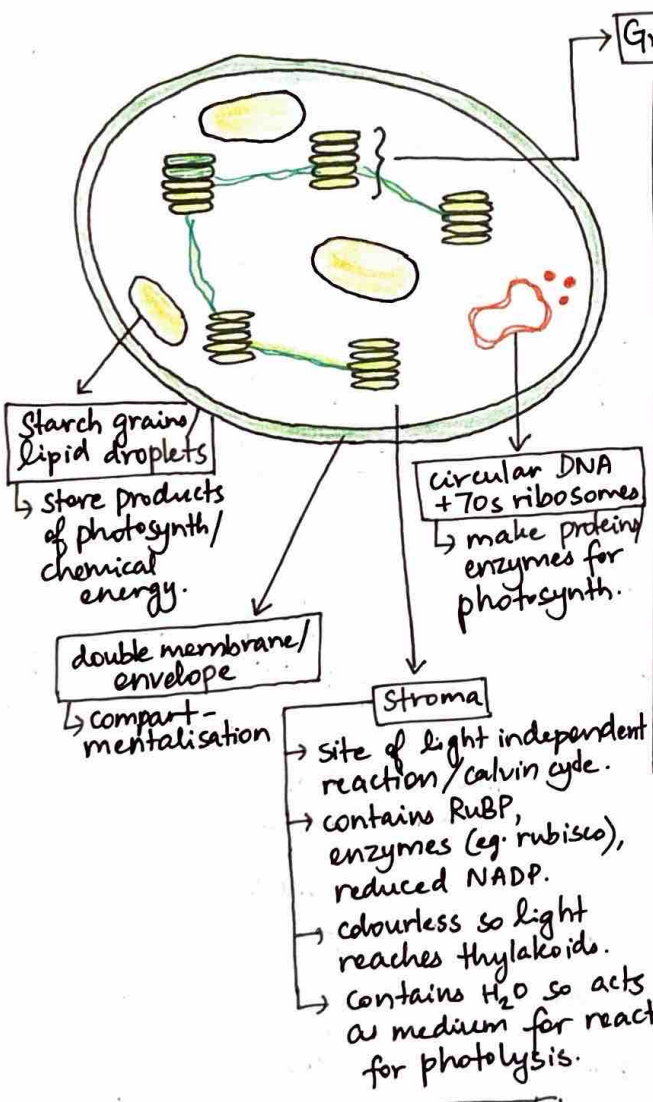 Starch grains/
lipid droplets
↳ store products
of photosynth/
chemical
energy.
circular DNA
+70s ribosomes
↳ make proteins/
enzymes for
photosynth.
double membrane/
envelope
↳ compart-
mentalisation
Stroma
→ site of light independent
reaction/calvin cycle.
→ contains RuBP,
enzymes (eg. rubisco),
reduced NADP.
→ colourless so light
reaches thylakoids.
→ contains H₂O so acts
as medium for react
for photolysis.